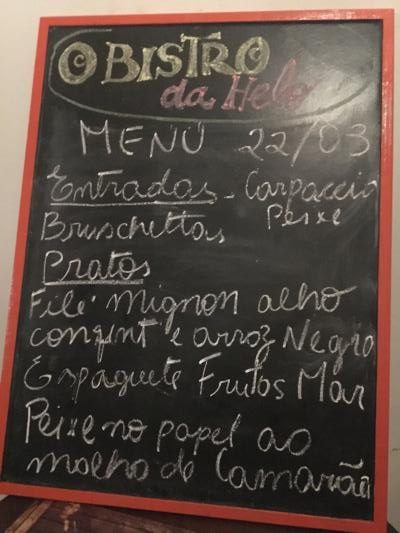 O BISTRO
da Hele
MENÚ 22/03
Entradas - Carpaccio
Bruschettas Peixe
Pratos
Filé mignon alho
confint e arroz Negro
Espaguete Frutos Mar
Peixe no papel ao
molho de Camarão